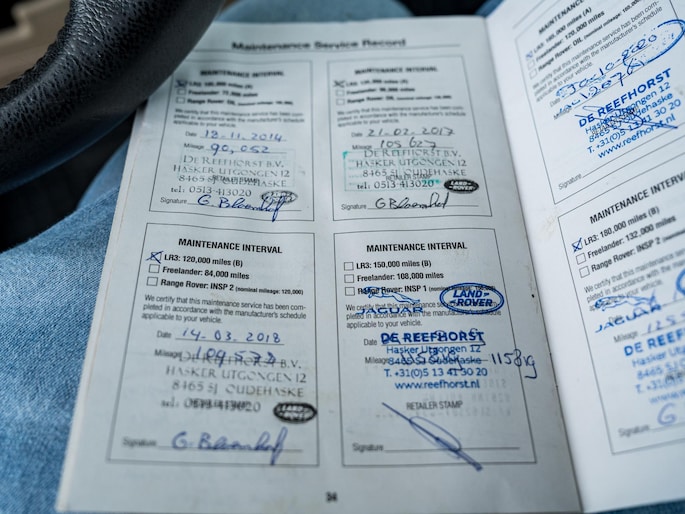 Maintenance Service Record
MAINTENANCE INTERVAL
LR3: 105,000 miles (A)
Freelander: 72,000 miles
Range Rover: OIL
We certify that this maintenance service has been com-
pleted in accordance with the manufacturer's schedule
applicable to your vehicle.
Date 18.11.2014
Mileage 90,052
DE REEFHORST B.V.
HASKER UTGONGEN 12
8465 SJ OUDEHASKE
tel: 0513-413020
LAND ROVER
Signature G. Bloemhof
MAINTENANCE INTERVAL
Freelander: 96,000 miles
Range Rover: OIL
We certify that this maintenance service has been com-
pleted in accordance with the manufacturer's schedule
applicable to your vehicle.
Date 21-02-2017
Mileage 105 627
DE REEFHORST B.V.
HASKER UTGONGEN 12
8465 SJ OUDEHASKE
RETAILER STAMP
tel: 0513-413020
LAND ROVER
Signature G Bloemhof
MAINTENANCE INTERVAL
LR3: 120,000 miles (B)
Freelander: 84,000 miles
Range Rover: INSP 2 (nominal mileage: 120,000)
We certify that this maintenance service has been com-
pleted in accordance with the manufacturer's schedule
applicable to your vehicle.
Date 14.03.2018
Mileage
DE REEFHORST B.V.
HASKER UTGONGEN 12
8465 SJ OUDEHASKE
tel: 0513-413020
LAND ROVER
Signature G. Bloemhof
MAINTENANCE INTERVAL
LR3: 150,000 miles (A)
Freelander: 108,000 miles
Range Rover: INSP 1
We certify that this maintenance service has been com-
pleted in accordance with the manufacturer's schedule
applicable to your vehicle.
JAGUAR
LAND-ROVER
Date
DE REEFHORST
Hasker Utgongen 12
Mileage
8465 SJ Oudehaske
T. +31(0)5 13 41 30 20
www.reefhorst.nl
RETAILER STAMP
Signature
34
MAINTENANCE INTERVAL
LR3: 165,000 miles (A)
Freelander: 120,000 miles
Range Rover: OIL
We certify that this maintenance has been
pleted in accordance with the manufacturer's schedule
applicable to your vehicle.
DE REEFHORST
Hasker Utgongen 12
8465 SJ Oudehaske
T. +31(0)5 13 41 30 20
www.reefhorst.nl
MAINTENANCE INTERVAL
LR3: 180,000 miles (B)
Freelander: 132,000 miles
Range Rover: INSP 2
We certify that this maintenance
pleted in accordance with the
applicable to your vehicle.
JAGUAR
Date
Mileage
DE REEF
Hasker
8465
T. +31
www.
Signature G